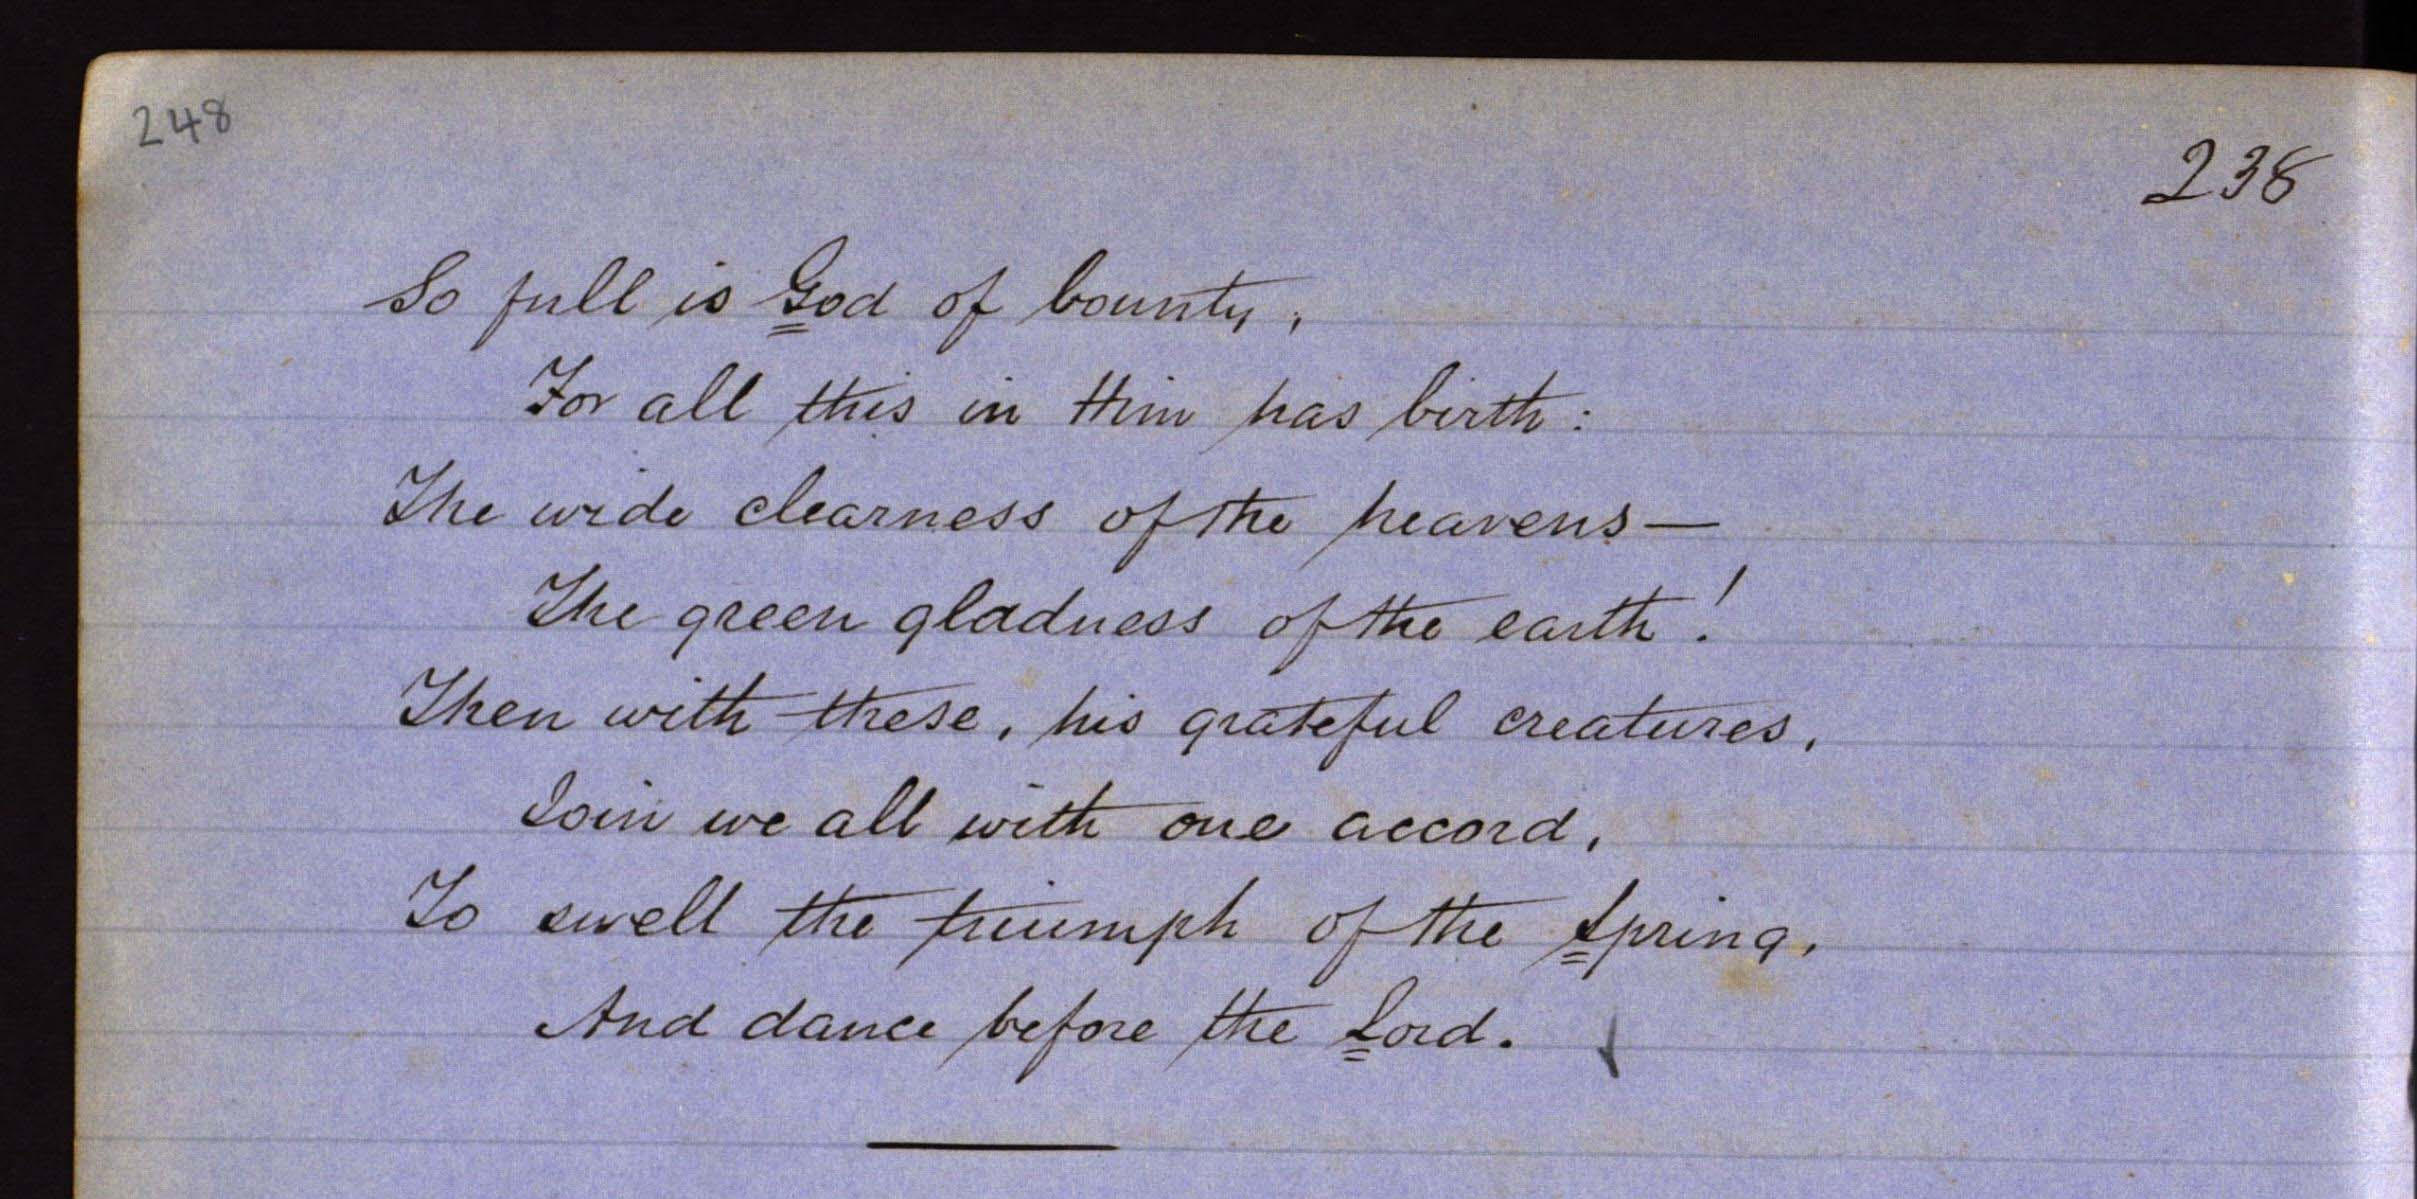 248
238
So full is God of bounty,
For all this in Him has birth:
The wide clearness of the heavens—
The green gladness of the earth!
Then with these, his grateful creatures,
Join we all with one accord,
To swell the triumph of the Spring,
And dance before the Lord.